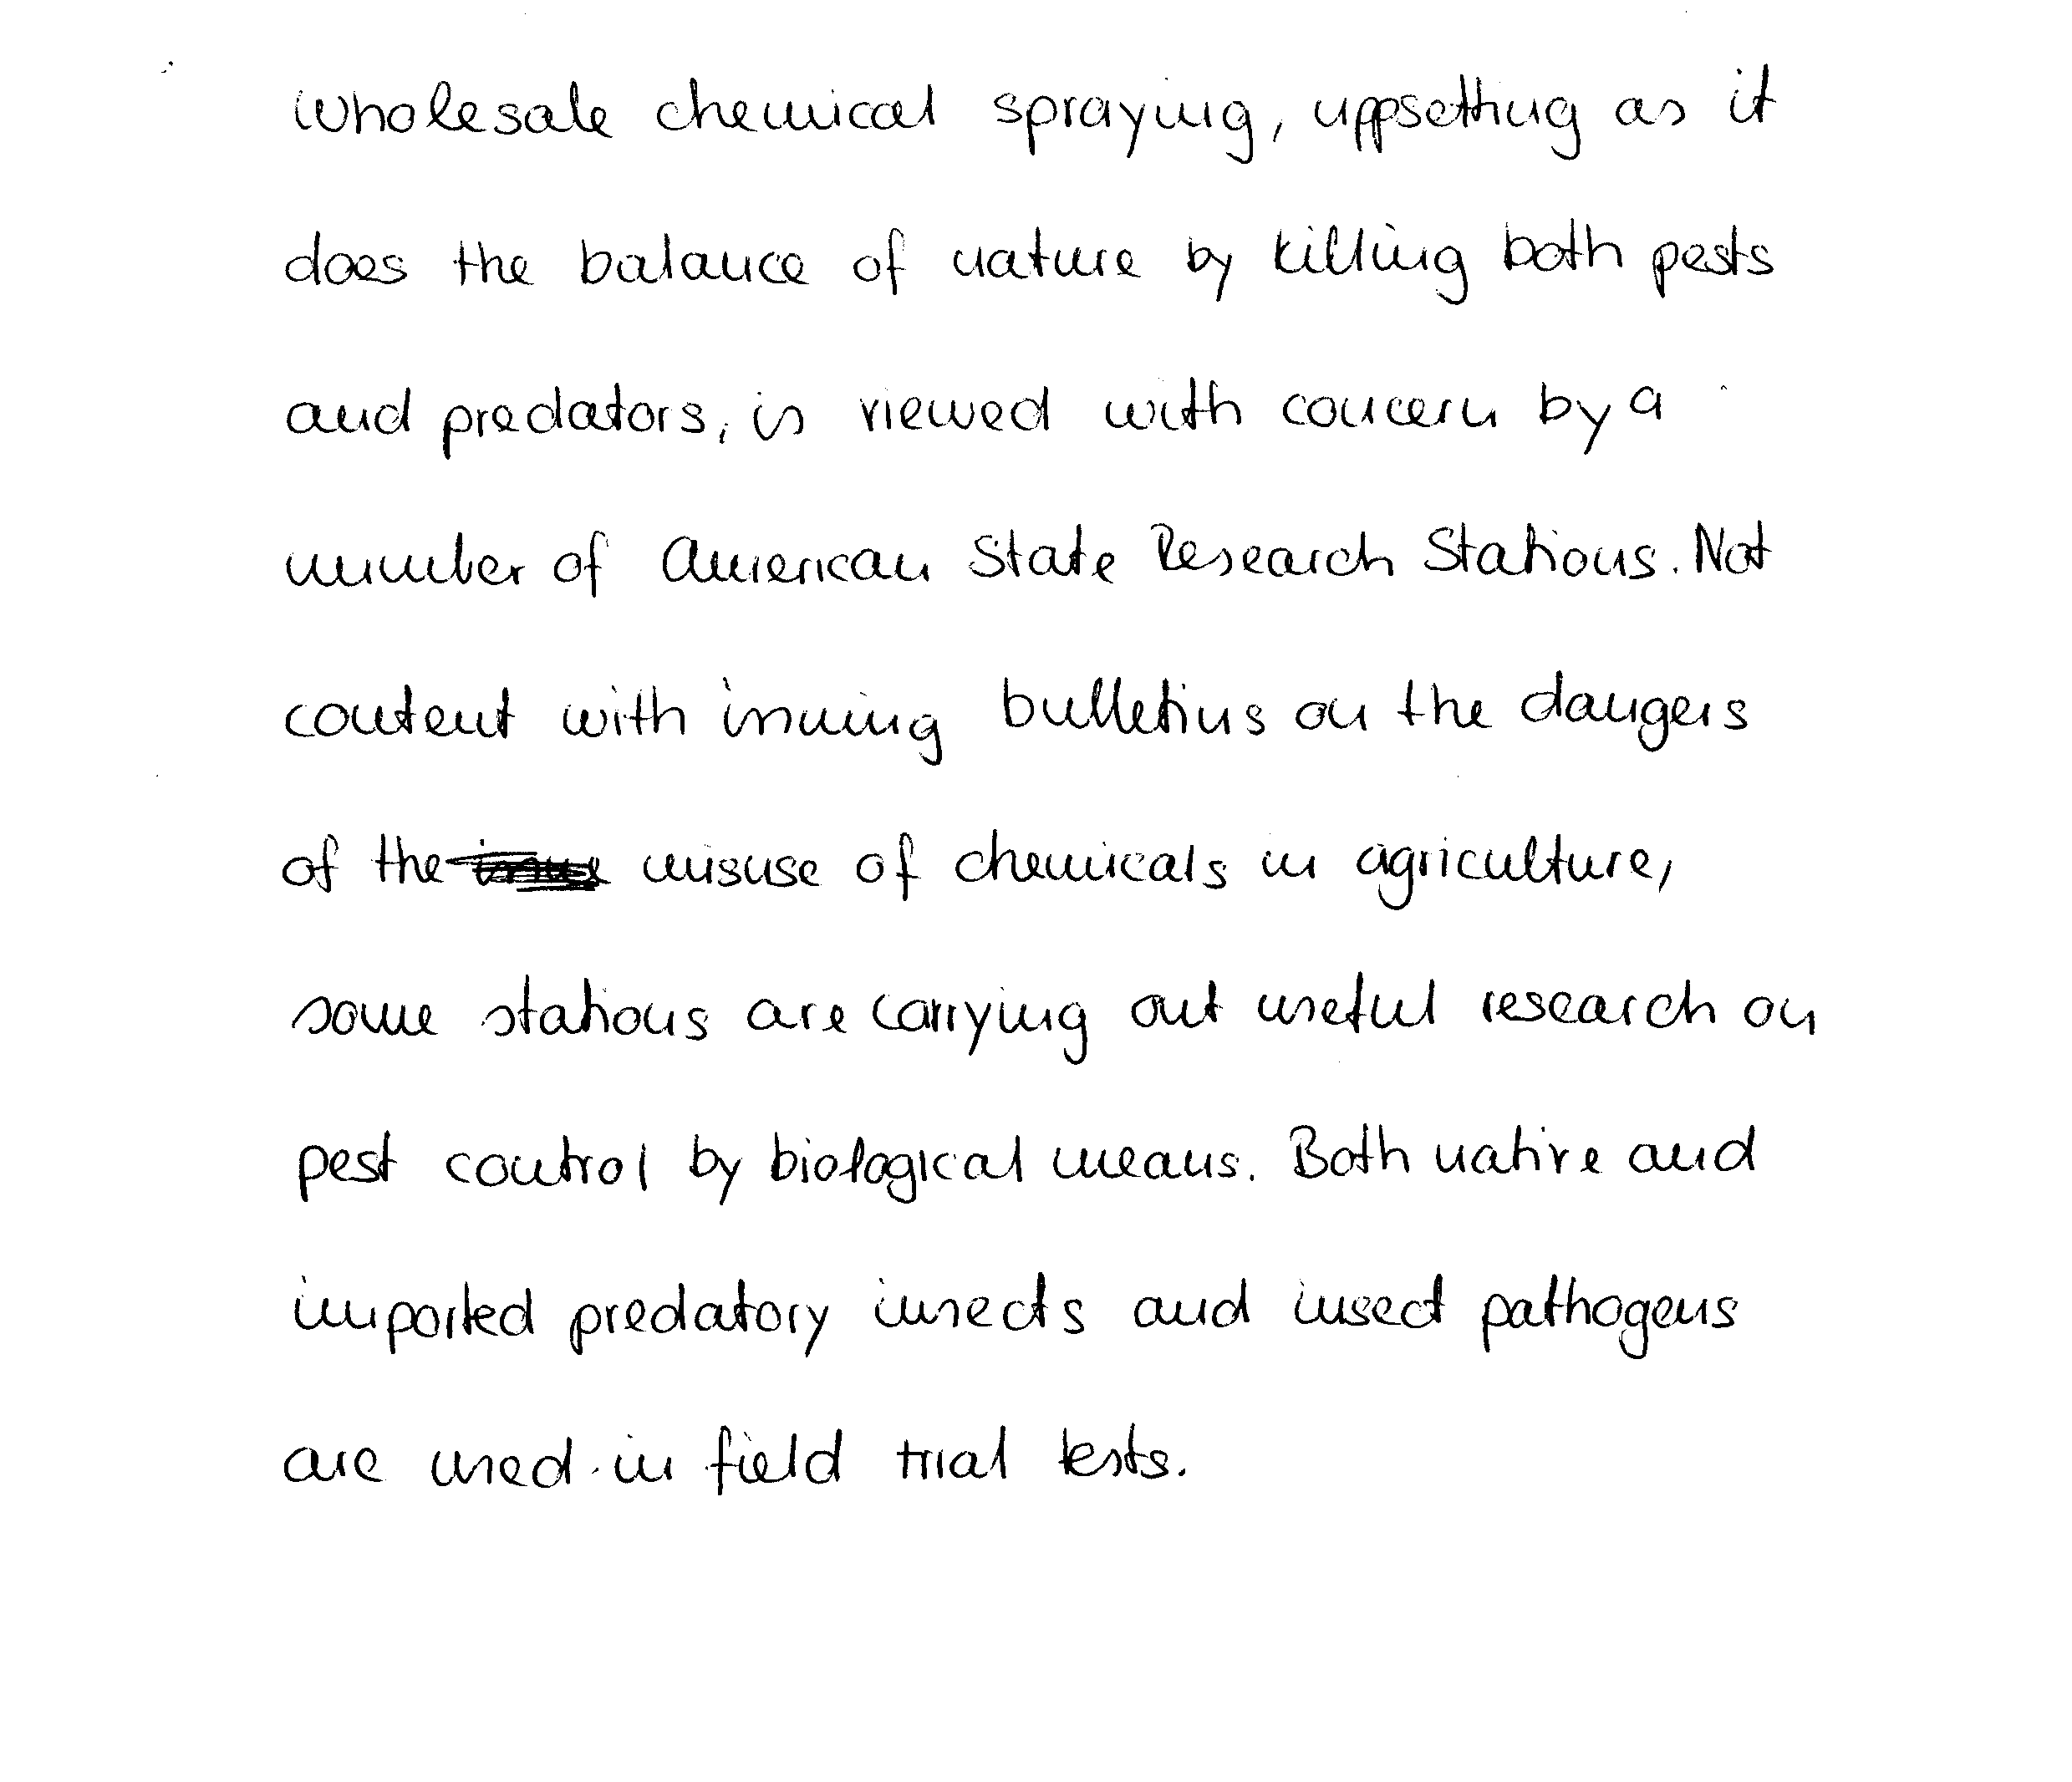 wholesale chemical spraying, uppsetting as it
does the balance of nature by killing both pests
and predators, is viewed with concern by a
number of American State Research Stations. Not
content with issuing bulletins on the dangers
of the misuse of chemicals in agriculture,
some stations are carrying out useful research on
pest control by biological means. Both native and
imported predatory insects and insect pathogens
are used in field trial tests.